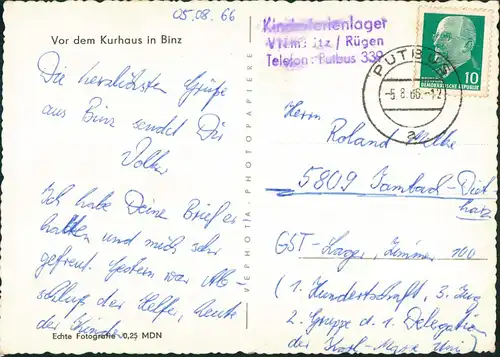 05.08.66
Vor dem Kurhaus in Binz
Die herzlichsten Grüße
aus Binz sendet Dir
Volker
Ich habe Deine Brief er
halten und mich sehr
gefreut. Gestern war Ab
schluß der Helfer, heute
der Kinder.
Echte Fotografie 0,25 MDN
AEPHOTIA-PHOTOPAPIERE
Kinderferienlager
/ Rügen
Telefon: Putbus 339
PUTBUS
-5.8.66.-12
a
10
DEUTSCHE DEMOKRATISCHE REPUBLIK
Herrn
Roland
5809 Tambach-Diet
harz
GST-Lager, Zimmer 100
(1. Hundertschaft, 3. Zug
2. Gruppe d. 1 Delegation
der Karl-Marx Uni)